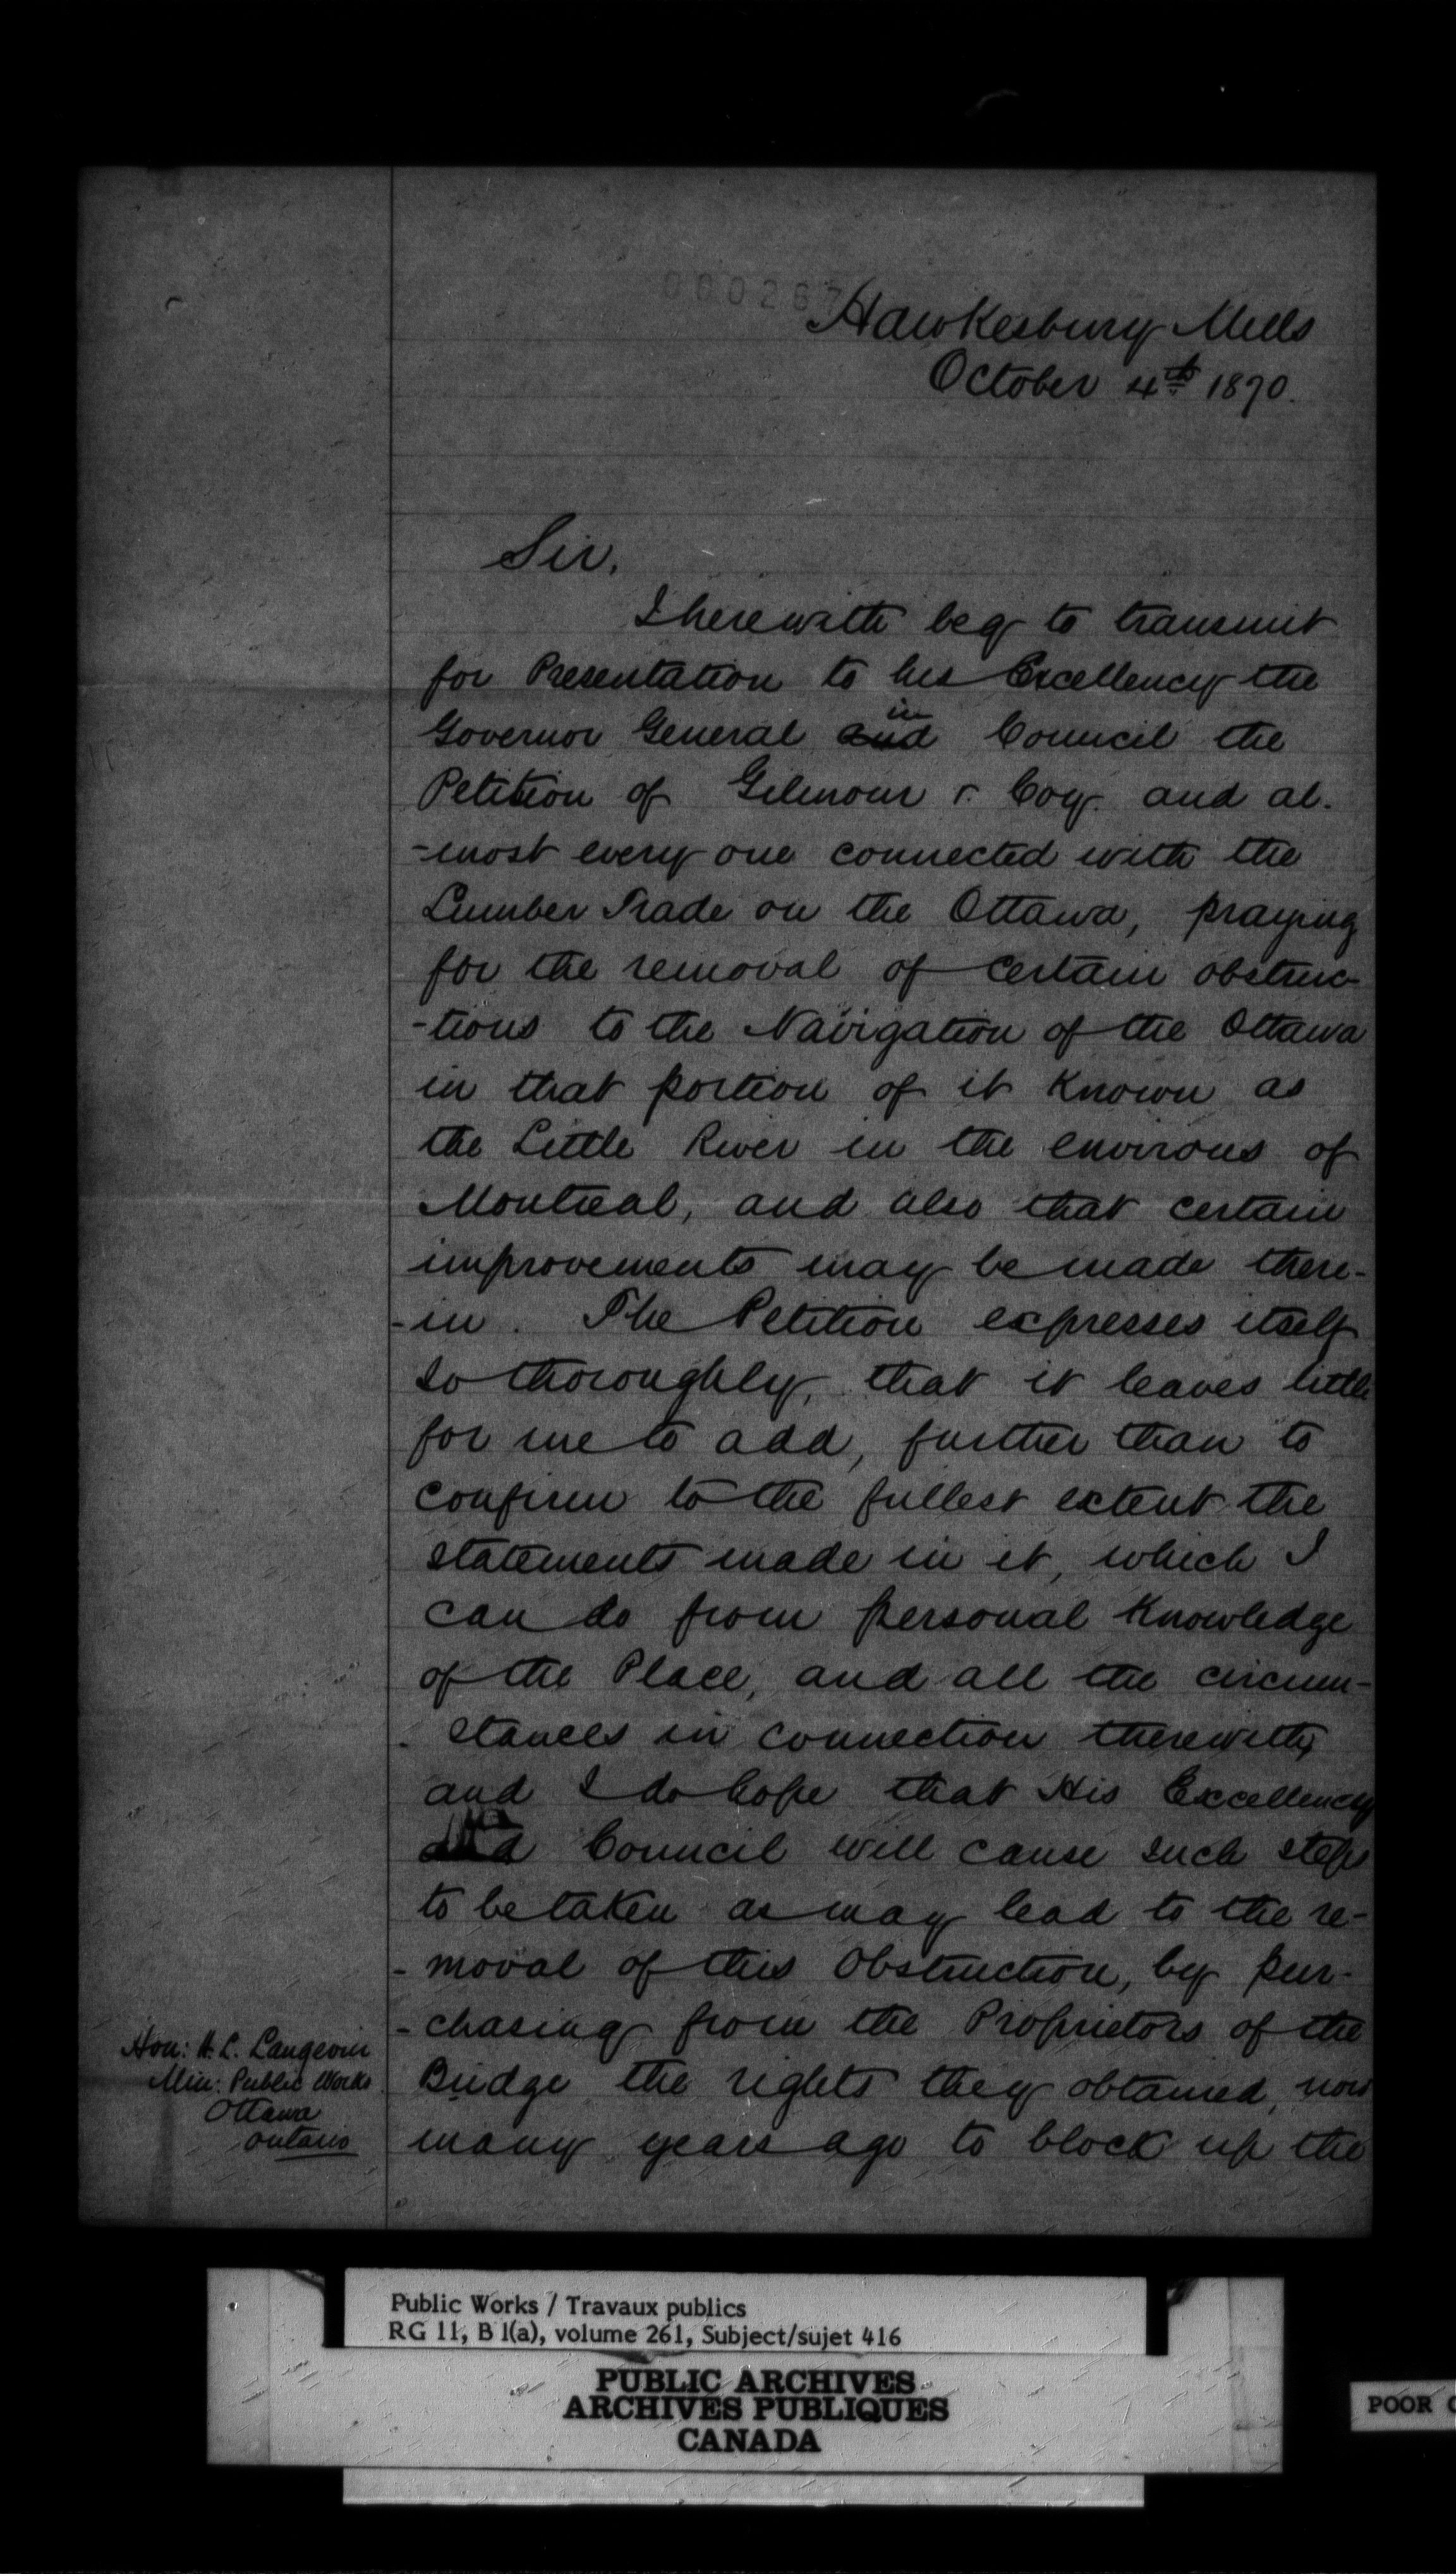 000267
Hawkesbury Mills
October 4th 1870.
Sir,
I herewith beg to transmit
for Presentation to his Excellency the
Governor General and in Council the
Petition of Gilmour & Coy. and al-
-most every one connected with the
Lumber Trade on the Ottawa, praying
for the removal of certain obstruc-
-tions to the Navigation of the Ottawa
in that portion of it known as
the Little River in the environs of
Montreal, and also that certain
improvements may be made there-
-in. The Petition expresses itself
so thoroughly, that it leaves little
for me to add, further than to
confirm to the fullest extent the
statements made in it, which I
can do from personal knowledge
of the Place, and all the circum-
-stances in connection therewith
and I do hope that His Excellency
Council will cause such steps
to be taken as may lead to the re-
-moval of this Obstruction, by pur-
-chasing from the Proprietors of the
Bridge the rights they obtained, now
many years ago to block up the
Hon: H. L. Langevin
Min: Public Works
Ottawa
Ontario
Public Works / Travaux publics
RG 11, B 1(a), volume 261, Subject/sujet 416
PUBLIC ARCHIVES
ARCHIVES PUBLIQUES
CANADA
POOR